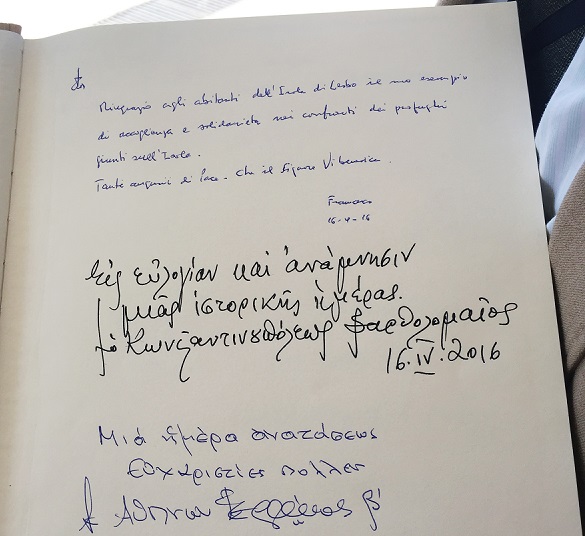 Ringrazio agli abitanti dell'Isola di Lesbo il suo esempio
di accoglienza e solidarietà nei confronti dei profughi
giunti sull'Isola.
Tanti auguri di Pace. Che il Signore Vi benedica.
Francesco
16-4-16
Εἰς εὐλογίαν καὶ ἀνάμνησιν
μιᾶς ἱστορικῆς ἡμέρας.
ὁ Κωνσταντινουπόλεως Βαρθολομαῖος
16.IV.2016
Μιά ἡμέρα
Εὐχαριστίες
Ἀθηνῶν β'